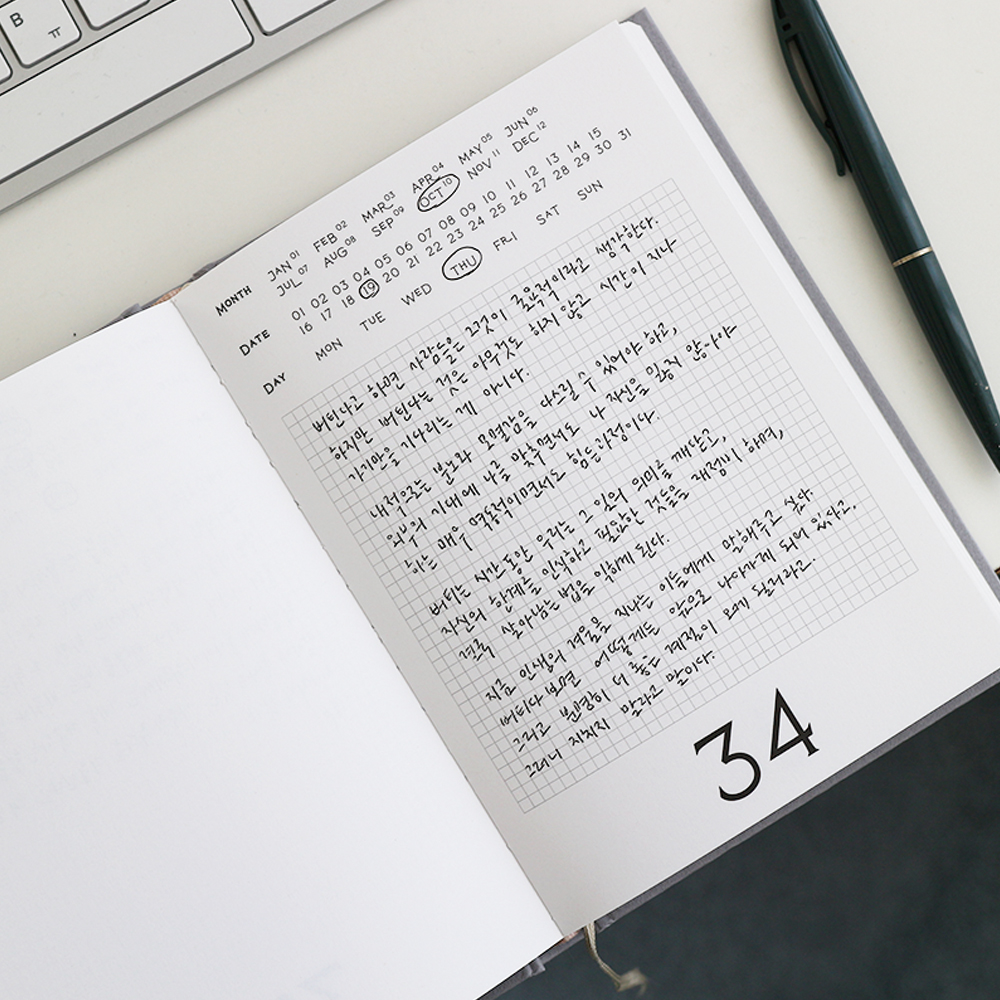 B
ㅠ
MONTH
JAN 01 FEB 02 MAR 03 APR 04 MAY 05 JUN 06
JUL 07 AUG 08 SEP 09 OCT 10 NOV 11 DEC 12
DATE
01 02 03 04 05 06 07 08 09 10 11 12 13 14 15
16 17 18 19 20 21 22 23 24 25 26 27 28 29 30 31
DAY
MON TUE WED THU FRI SAT SUN
버틴다고 하면 사람들은 그것이 굴욕적이라고 생각한다.
하지만 버틴다는 것은 아무것도 하지 않고 시간이 지나
가기만을 기다리는 게 아니다.
내적으로는 분노와 모멸감을 다스릴 수 있어야 하고,
외부의 기대에 나를 맞추면서도 나 자신을 잃지 않아야
하는 매우 역동적이면서도 힘든 과정이다.
버티는 시간동안 우리는 그 일의 의미를 깨닫고,
자신의 한계를 인식하고 필요한 것들을 재정비 하며,
결국 살아남는 법을 익히게 된다.
지금 인생의 겨울을 지나는 이들에게 말해주고 싶다.
버티다 보면 어떻게든 앞으로 나아가게 되어 있다고,
그리고 분명히 더 좋은 계절이 오게 될거라고.
그러니 지치지 말라고 말이다.
34